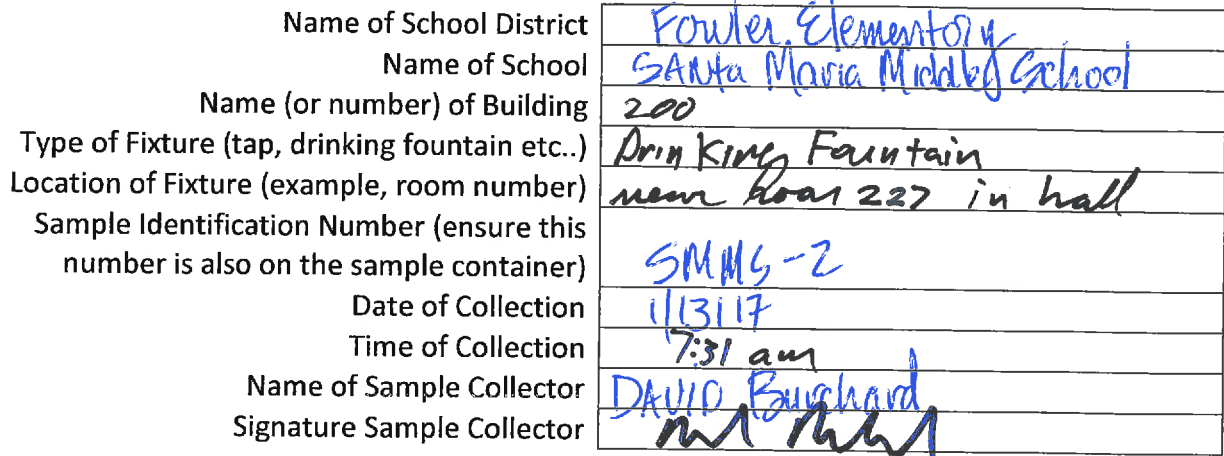 Name of School District Fowler Elementary
Name of School SANta Maria Middle School
Name (or number) of Building 200
Type of Fixture (tap, drinking fountain etc..) Drinking Fountain
Location of Fixture (example, room number) near 227 in hall
Sample Identification Number (ensure this
number is also on the sample container) SMMS-2
Date of Collection 1/13/17
Time of Collection 7:31 am
Name of Sample Collector DAVID Burchard
Signature Sample Collector